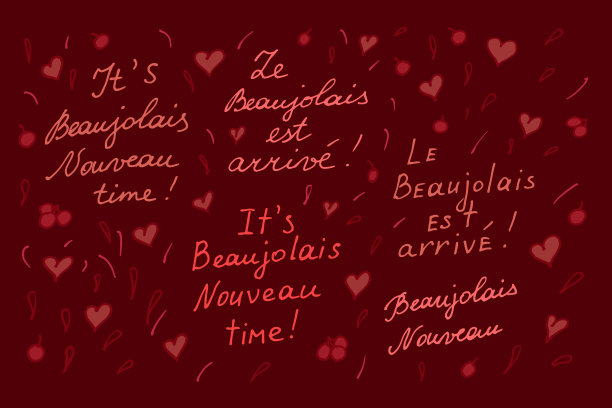 It's
Beaujolais
Nouveau
time!
Le
Beaujolais
est
arrivé!
Le
Beaujolais
est
arrivé!
It's
Beaujolais
Nouveau
time!
Beaujolais
Nouveau